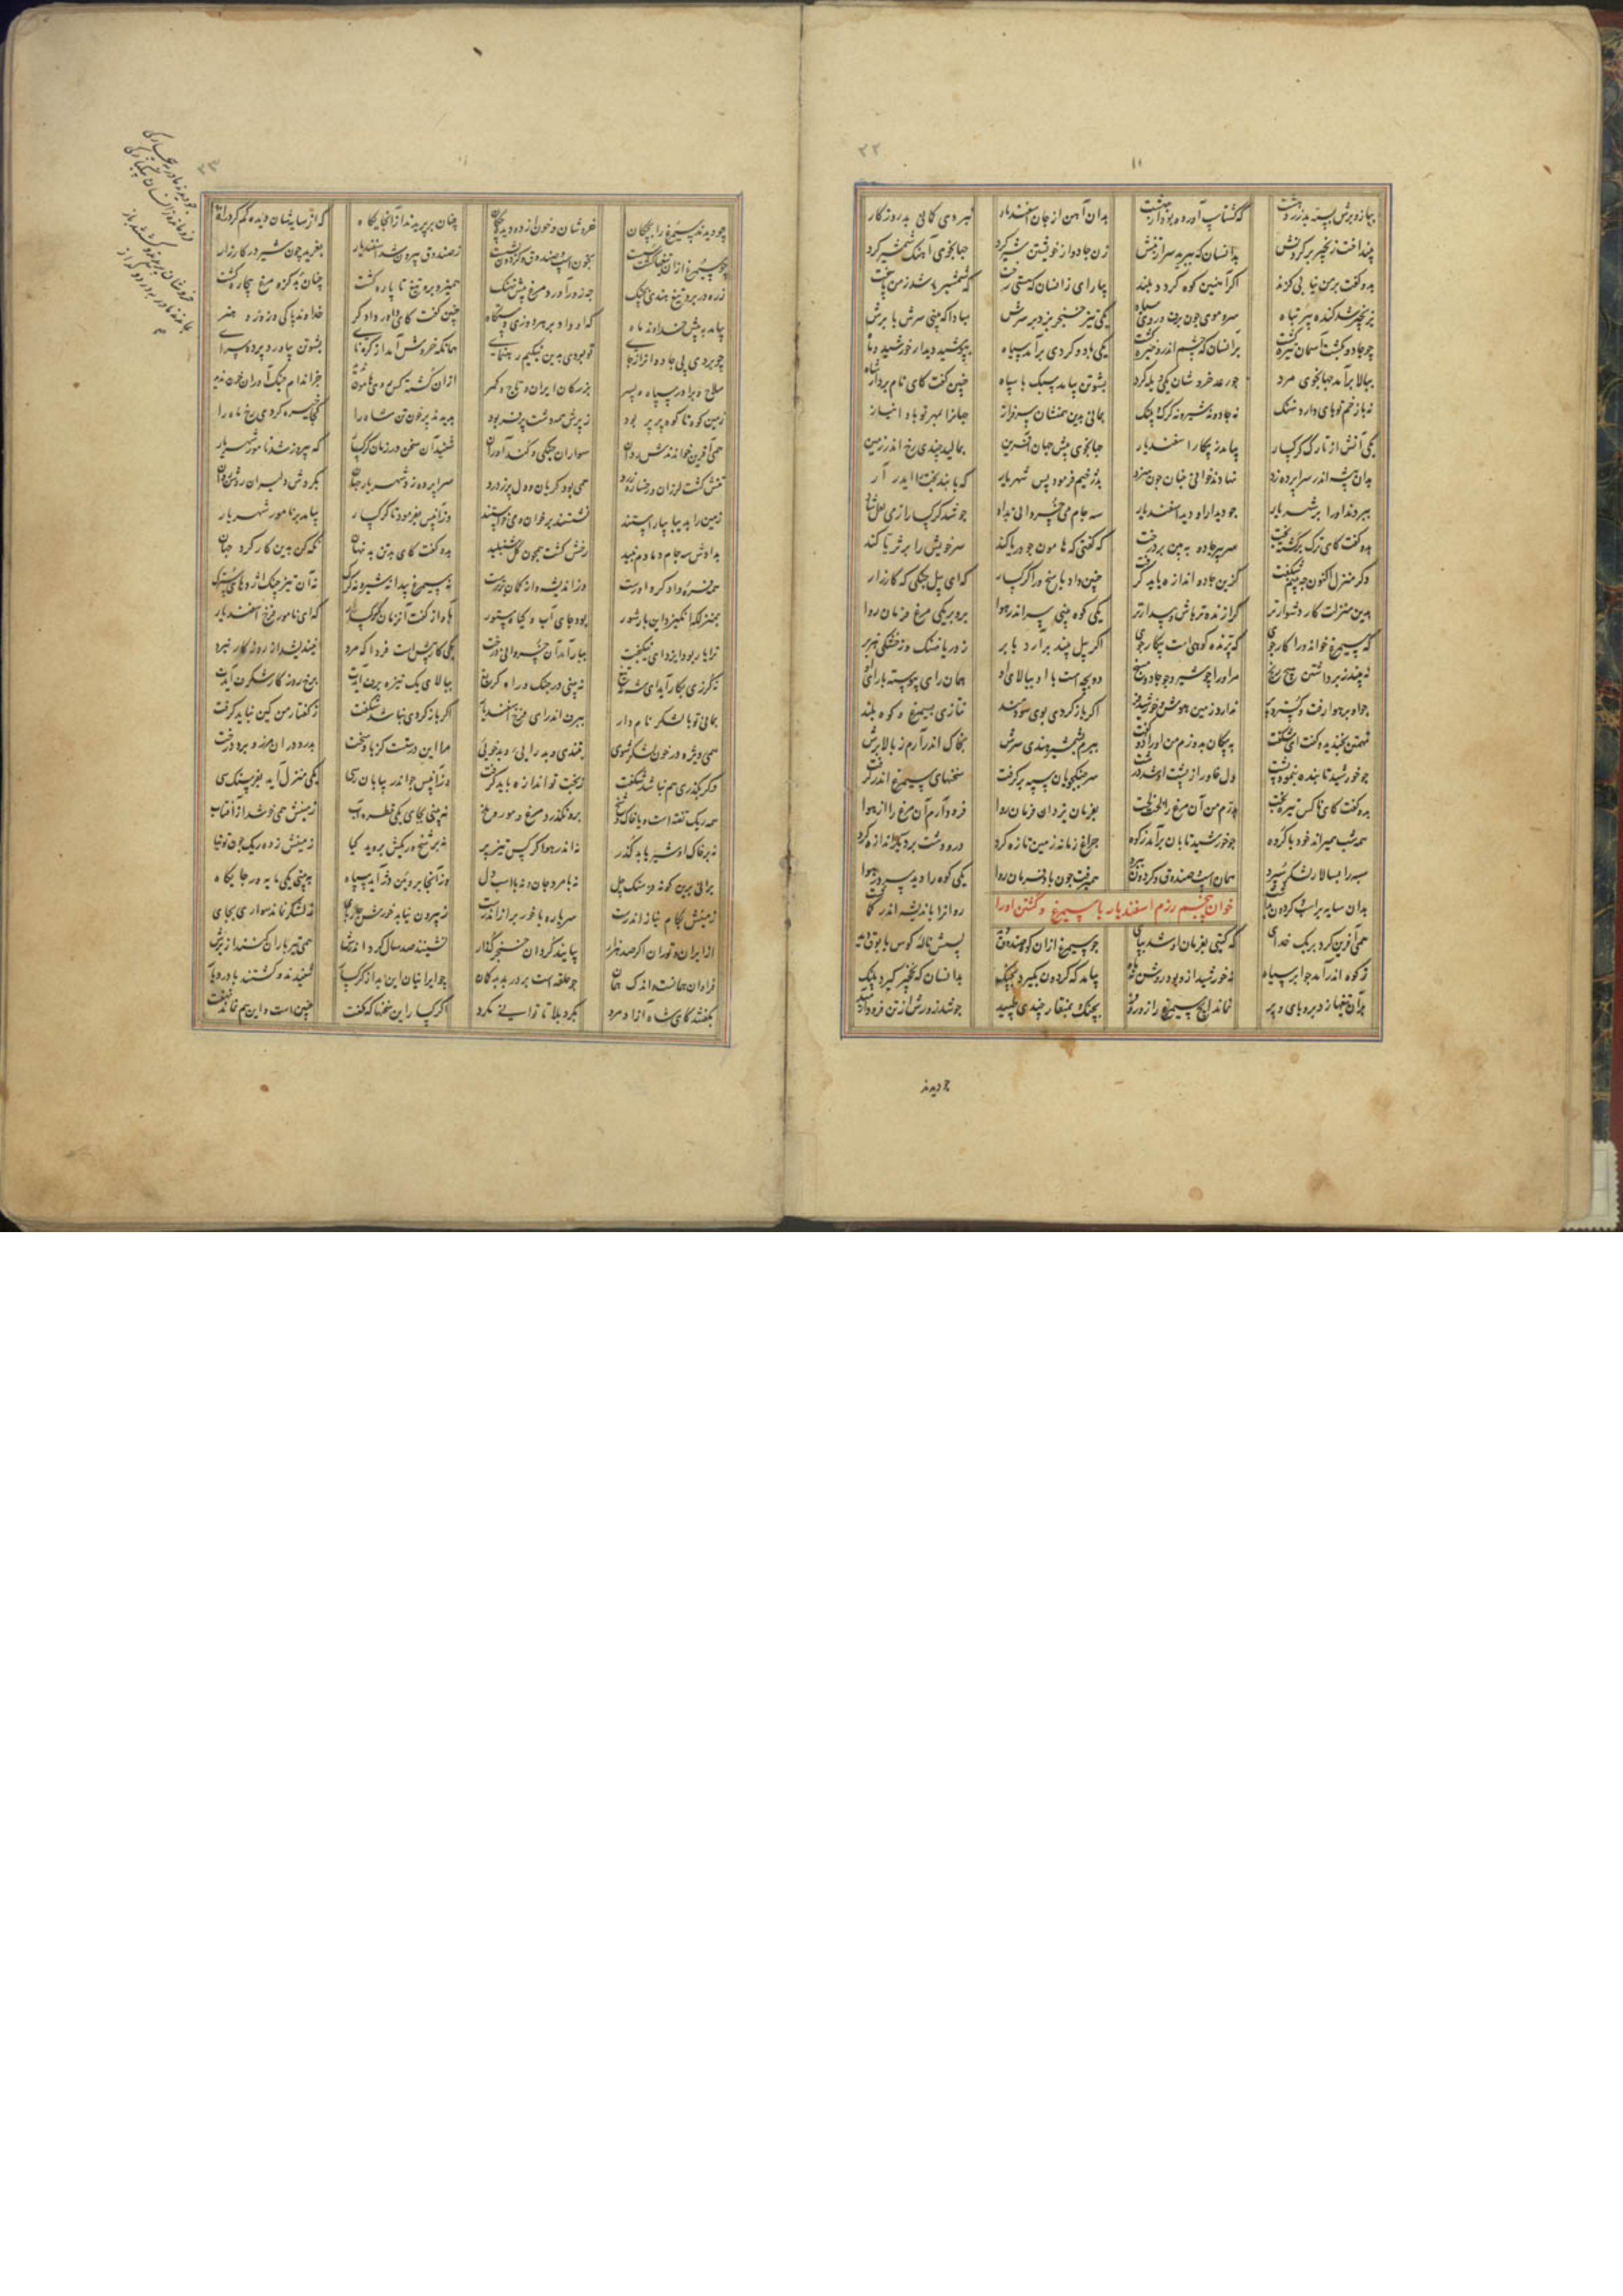 ٢٢
١١
ببازوبرش بسته بد زردهشت که گشتاسب آورده بود از بهشت بدان آهن از جان اسفندیار نبردی گمانی بد روزگار
بینداخت زنجیر بر گردنش بدانسان که ببرید سر از تنش زن جادو از خویشتن شیر کرد جهانجوی آهنگ شمشیر کرد
بدو گفت بر من نیابی گزند اگر آهنین کوه گردد بلند بیارای زانسان که هستی رخت که شمشیر باشد ز من پاسخت
بزنجیر شد گنده پیر تباه سر و موی چون برف و روی سیاه یکی تیز خنجر بزد بر سرش مبادا که بینی سرش با برش
چو جادو بکشت آسمان تیره گشت برانسان که چشم اندرو خیره گشت یکی باد و گردی برآمد سیاه بپوشید دیدار خورشید و ماه
ببالا برآمد جهانجوی مرد چو رعد خروشان یکی ویله کرد بشوتن بیامد سبک با سپاه چنین گفت کای نامبردار شاه
نه با زخم تو پای دارد نهنگ نه جادو نه شیر و نه گرگ و پلنگ بمانی بدین همنشان سرفراز جهانرا بمهر تو بادا نیاز
یکی آتش از تارک گرگسار بیامد ز پیکار اسفندیار جهانجوی پیش جهان آفرین بمالید چندی رخ اندر زمین
بدان بیشه اندر سراپرده زد نهادند خوانی چنان چون سزد بدژخیم فرمود پس شهریار که با بند بدبخت را ایدر آر
ببردند او را بر شهریار چو دیدار او دید اسفندیار سه جام می خسروانی بداد چو شد گرگسار از می لعل شاد
بدو گفت کای ترک برگشته بخت سر پیر جادو ببین بر درخت که گفتی که هامون چو دریا کند سر خویش را بر ثریا کند
دگر منزل اکنون چه بینم شگفت کزین جادو اندازه باید گرفت چنین داد پاسخ ورا گرگسار که ای پیل جنگی که کارزار
بدین منزلت کار دشوارتر گراینده تر باش و بیدارتر یکی کوه بینی سر اندر هوا برو بر یکی مرغ فرمان روا
که سیمرغ خواند ورا کارجوی چو پرنده کوهیست پیکارجوی اگر پیل بیند برآرد بابر ز دریا نهنگ و ز خشکی هژبر
نه بیند ز برداشتن هیچ رنج مر او را چو شیر و چو جادو مسنج دو بچه است با او ببالای او همان رای پیوسته با رای او
چو او بر هوا رفت و گسترد پر ندارد زمین هوش و خورشید فر اگر باز گردی بوی سودمند نتازی بسیمرغ و کوه بلند
تهمتن بخندید و گفت ای شگفت به پیکان بدوزم من او را دو کفت ببرم بشمشیر هندی سرش بخاک اندر آرم ز بالا برش
چو خورشید تابنده بنمود پشت دل خاور از پشت او شد درشت سر جنگجویان سپه برگرفت سخنهای سیمرغ اندر گرفت
همه شب همی راند خود با گروه چو خورشید تابان برآمد ز کوه چراغ زمانه زمین تازه کرد در و دشت بر دیگر اندازه کرد
سپه را بسالار لشکر سپرد همان اسپ و صندوق و گردون ببرد همیرفت چون باد فرمان روا یکی کوه را دید سر در هوا
بدان سایه بر اسپ و گردون بداشت روانرا باندیشه اندر گماشت
خوان پنجم رزم اسفندیار با سیمرغ و کشتن او را
همی آفرین کرد بر یک خدای که گیتی بفرمان او شد بپای چو سیمرغ از آن کوه صندوق دید پسش ناله کوس با بوق دید
ز کوه اندر آمد چو ابر سیاه نه خورشید از او بود روشن نه ماه بیامد که گردون بگیرد بچنگ بدانسان که نخچیر گیرد پلنگ
بران تیغها زد بر و پای و پر نماند ایچ سیمرغ را زور و فر بچنگ و بمنقار چندی طپید چو شد زورش از تن فرو آرمید
چو دیدند
٢٣
چو دیدند سیمرغ را بچگان خروشان و خون از دو دیده چکان چنان بر پریدند از آن جایگاه که از سایه‌شان دیده گم کرد راه
چو سیمرغ از آن تیغها گشت سست بخون اسپ و صندوق و گردون بشست ز صندوق بیرون شد اسفندیار بغرید چون شیر در کارزار
زره در بر و تیغ هندی بچنگ چه زور آورد مرغ پیش نهنگ همیزد برو تیغ تا پاره گشت چنان بد کزو مرغ بیچاره گشت
بیامد به پیش خداوند ماه که او داد بر هر دو زی دستگاه چنین گفت کای داور دادگر خداوند پاکی و زور و هنر
تو بردی پی جادوان را ز جای تو بودی بدین نیکیم رهنمای همانگه خروش آمد از کره نای بشوتن بیاورد پرده سرای
سلاح و برادر سپاه و پسر بزرگان ایران و تاج و کمر
زمین کوه تا کوه پر پر بود ز پرش همه دشت پر فر بود بدیدند پر خون تن شاه را کجا خیره کردی رخ ماه را
همی آفرین خواندندش سران سواران جنگی و کندآوران شنید آن سخن در زمان گرگسار که پیروز شد نامور شهریار
تنش گشت لرزان و رخساره زرد همی بود گریان و دل پر ز درد سراپرده زد شهریار جهان بگردش دلیران روشن روان
زمین را بدیبا بیاراستند نشستند بر خوان و می خواستند وز آن پس بفرمود تا گرگسار بیامد بر نامور شهریار
بدادش سه جام دمادم نبید رخش گشت همچون گل شنبلید بدو گفت کای بدتن بدنهان نگه کن بدین کار گرد جهان
نه سیمرغ پیدا نه شیر و نه گرگ نه آن تیز چنگ اژدهای سترگ
بمنزل که انگیزد این بار شور بود جای آب و گیاه ستور باواز گفت آنزمان گرگسار که ای نامور فرخ اسفندیار
ترا یار بود ایزد ای نیکبخت ببار آمد آن خسروانی درخت یکی کار پیش است فردا که مرد نیندیشد از روزگار نبرد
نه گرزت بکار آید ای شه نه تیغ نه بینی در جنگ و راه گریغ ببالای یک نیزه برف آیدت بدین روزگار شگرف آیدت
بمانی تو با لشکر نامدار ببرف اندر ای فرخ اسفندیار اگر باز گردی نباشد شگفت ز گفتار من کین نباید گرفت
همی ویژه در خون لشکر شوی بتندی و بد رایی و بدخویی مرا این درستست کز باد سخت بدرد در آن مرز و بر و درخت
وگر بگذری هم نباشد شگفت ز بخت تو اندازه باید گرفت وز آن پس چو اندر بیابان رسی یکی منزل آید بفرسنگ سی
همه ریگ تفته است و با خاک و شخ برو نگذرد مرغ و مور و ملخ نبینی بجای یکی قطره آب زمینش همی جوشد از آفتاب
نه بر خاک او شیر یابد گذر نه اندر هوا کرکس تیز پر نه بر شخ و ریگش بروید گیا زمینش زده ریگ چون توتیا
برانی برین گونه فرسنگ چل نه با مرد جان و نه با اسپ دل وز آنجا برویین دژ آید سپاه به بینی یکی مایه ور جایگاه
زمینش بکام نیاز اندرست سر باره با خور براز اندرست ز بیرون نیابد خورش چارپای نه لشکر نماند سواری بجای
از ایران و توران اگر صد هزار بیایند گردان خنجر گذار نشینند صد سال گرد اندرش همی تیرباران کنند از برش
فراوان همانست و اندک همان چو حلقه است بر در بد بدگمان چو ایرانیان این بد از گرگسار شنیدند و گشتند با درد یار
بگفتند کای شاه آزاد مرد بگرد بلا تا توانی مگرد اگر گرگسار این سخنها که گفت چنین است و این هم نماند نهفت